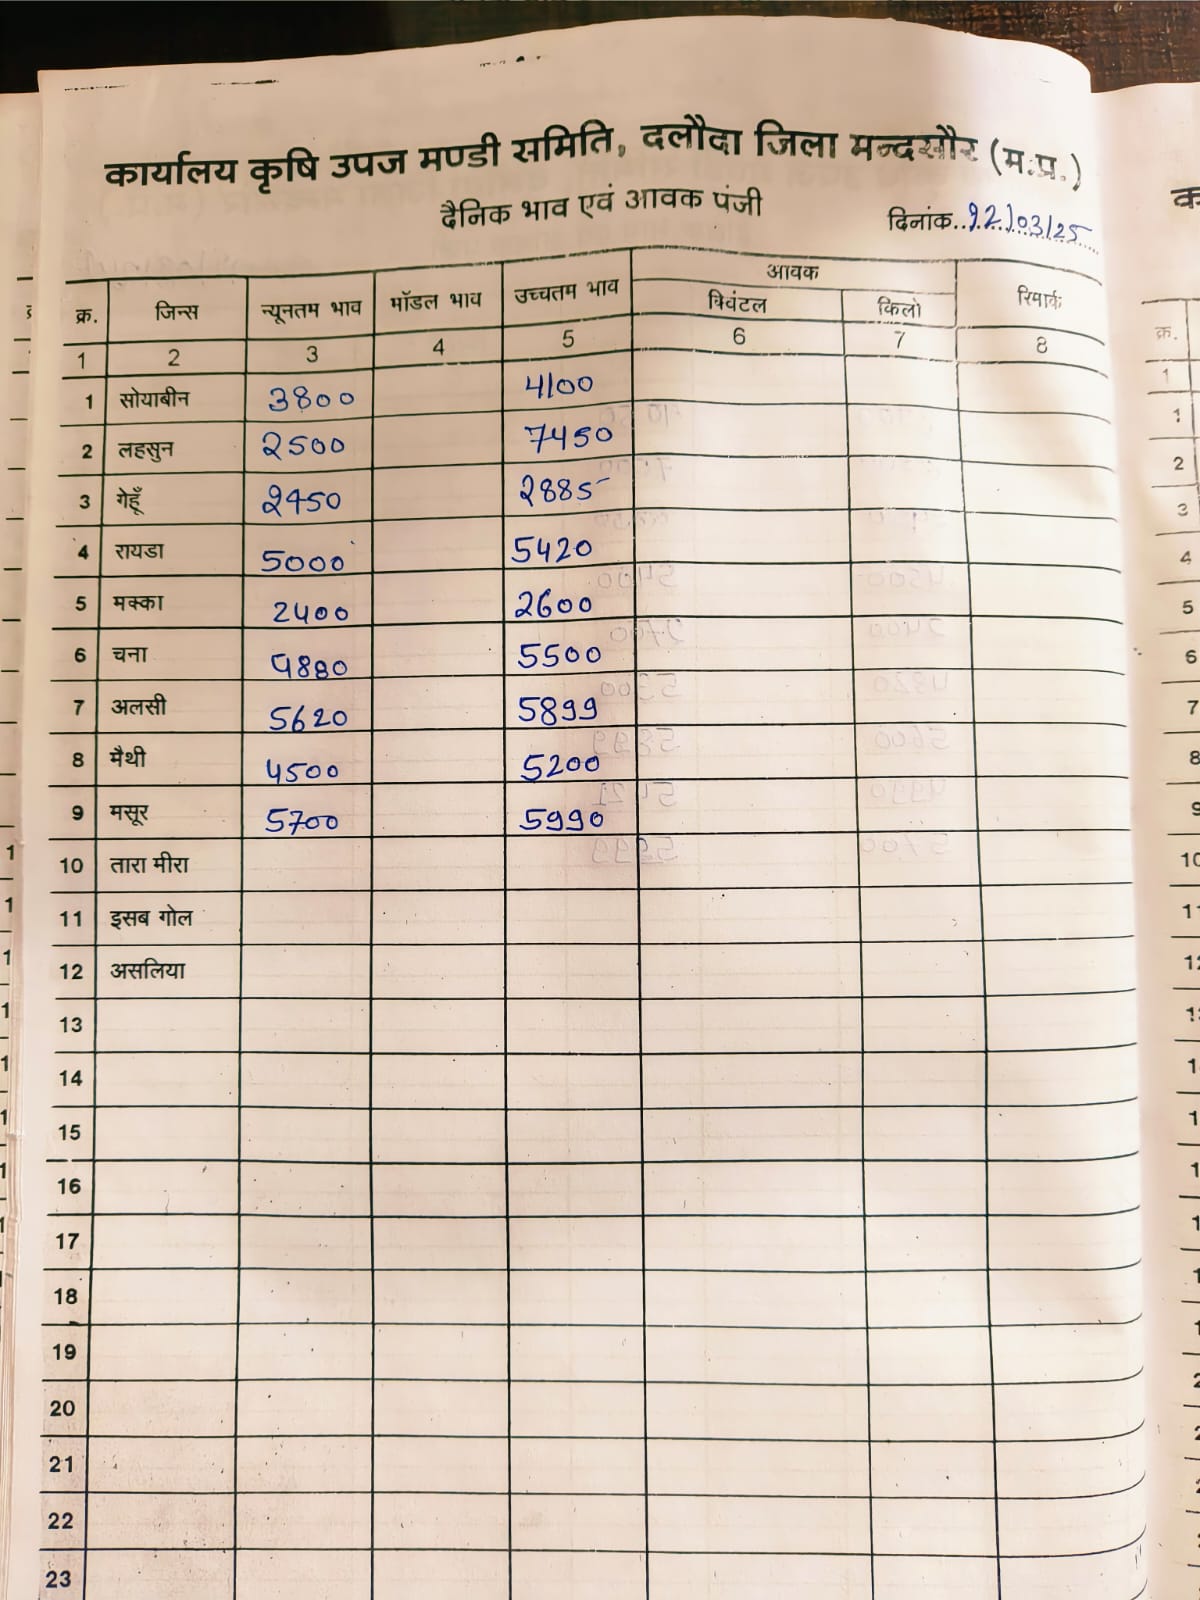 कार्यालय कृषि उपज मण्डी समिति, दलौदा जिला मन्दसौर (म.प्र.)
दैनिक भाव एवं आवक पंजी
दिनांक..12/03/25
क्र. जिन्स न्यूनतम भाव मॉडल भाव उच्चतम भाव आवक रिमार्क
क्विंटल किलो
1 2 3 4 5 6 7 8
1 सोयाबीन 3800 4100
2 लहसुन 2500 7450
3 गेहूँ 2450 2885
4 रायडा 5000 5420
5 मक्का 2400 2600
6 चना 4880 5500
7 अलसी 5620 5899
8 मैथी 4500 5200
9 मसूर 5700 5990
10 तारा मीरा
11 इसब गोल
12 असलिया
13
14
15
16
17
18
19
20
21
22
23